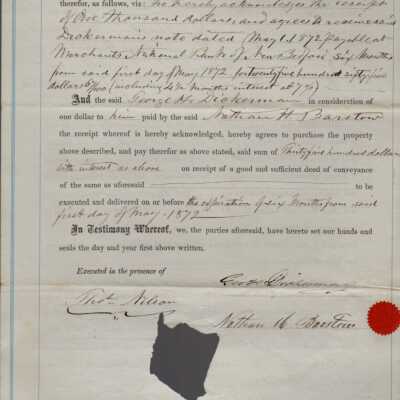 therefor, as follows, viz: he hereby acknowledges the receipt
of One thousand dollars, and agrees to receive said
Dickermans note dated (May 1st 1872 payable at
Merchants National Bank of New Bedford Six Months
from said first day of May, 1872, for twenty five hundred sixty five
dollars (including 4 1/2 Months interest at 7%)
And the said George H. Dickerman in consideration
of one dollar to him paid by the said Nathan H Barstow
the receipt whereof is hereby acknowledged, hereby agrees to purchase the property
above described, and pay therefor as above stated, said sum of Thirty five hundred dollars
with interest as above on receipt of a good and sufficient deed of conveyance
of the same as aforesaid to be
executed and delivered on or before the expiration of six Months from said
first day of May - 1872
In Testimony Whereof, we, the parties aforesaid, have hereto set our hands and
seals the day and year first above written.
Executed in the presence of
Geo H Dickerman
Thos Nelson
Nathan H Barstow